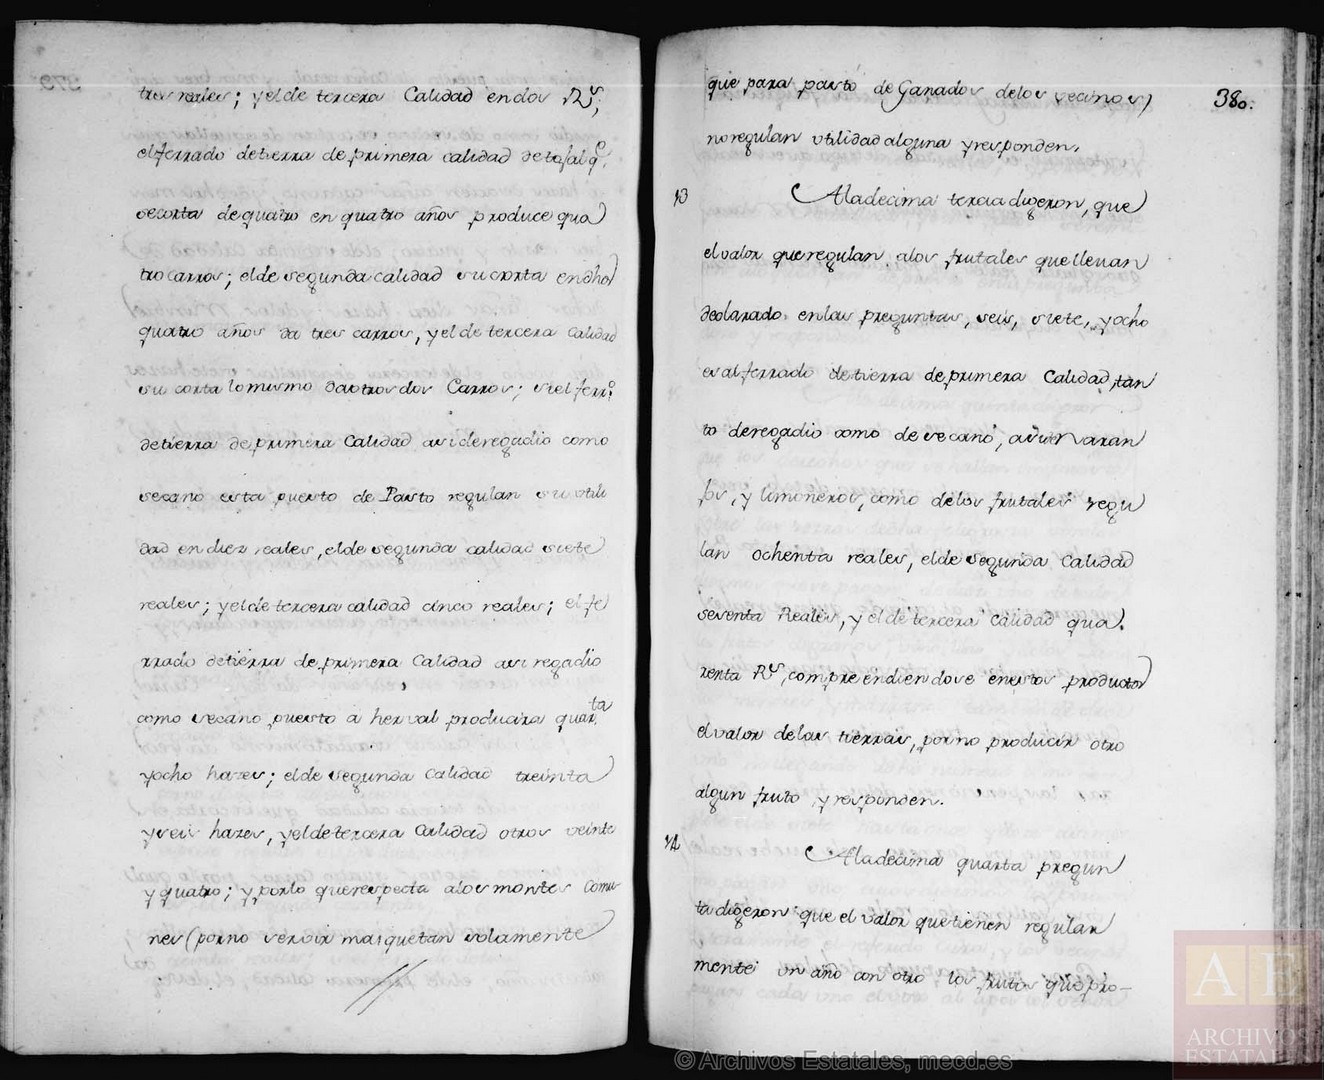 tres reales; y el de tercera Calidad en dos R.s;
el ferrado de tierra de primera calidad de tojal q.e
se corta de quatro en quatro años produce qua
tro carros; el de segunda calidad su corta en dhos
quatro años da tres carros, y el de tercera Calidad
su corta lo mismo da otros dos Carros; si el ferr.o
de tierra de primera Calidad asi de regadio como
secano esta puesto de Pasto regulan su utili
dad en diez reales, el de segunda calidad siete
reales; y el de tercera calidad cinco reales; el fe
rrado de tierra de primera Calidad asi regadio
como secano puesto a herval producira quar.ta
y ocho hazes; el de segunda Calidad treinta
y seis hazes, y el de tercera Calidad otros veinte
y quatro; y por lo que respecta a los montes Comu
nes (por no servir mas que tan solamente
380.
que para pasto de Ganados de los vecinos)
no regulan utilidad alguna y responden.
13 A la decima tercia digeron, que
el valor que regulan a los frutales que llevan
declarado en las preguntas, seis, siete, y ocho
es al ferrado de tierra de primera Calidad, tan
to de regadio como de secano, a su naran
jos, y limoneros, como de los frutales regu
lan ochenta reales, el de segunda Calidad
sesenta Reales, y el de tercera Calidad qua
renta R.s, comprendiendose en estos productos
el valor de las tierras, por no producir otro
algun fruto y responden.
14 A la decima quarta pregun
ta digeron que el valor que tienen regular
mente un año con otro los frutos que pro-
© Archivos Estatales, mecd.es
AE
ARCHIVOS
ESTATALES